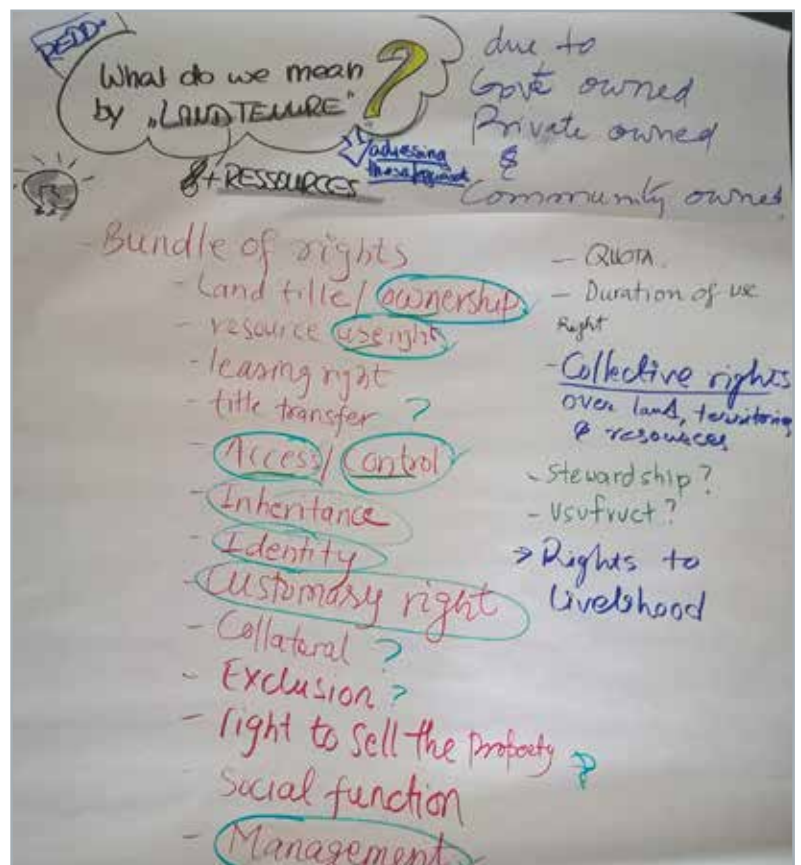 REDD+
What do we mean
by "LAND TENURE"
?
& + RESSOURCES
adressing
these
due to
Govt owned
Private owned
&
Community owned
- Bundle of rights
- Land title / ownership
- resource use right
- leasing right
- title transfer ?
- Access / Control
- Inheritance
- Identity
- Customary right
- Collateral ?
- Exclusion ?
- right to sell the Property ?
Social function
- Management
- QUOTA.
- Duration of use
Right
- Collective rights
over land, territories
& resources
- Stewardship ?
- Usufruct ?
→ Rights to
Livelihood